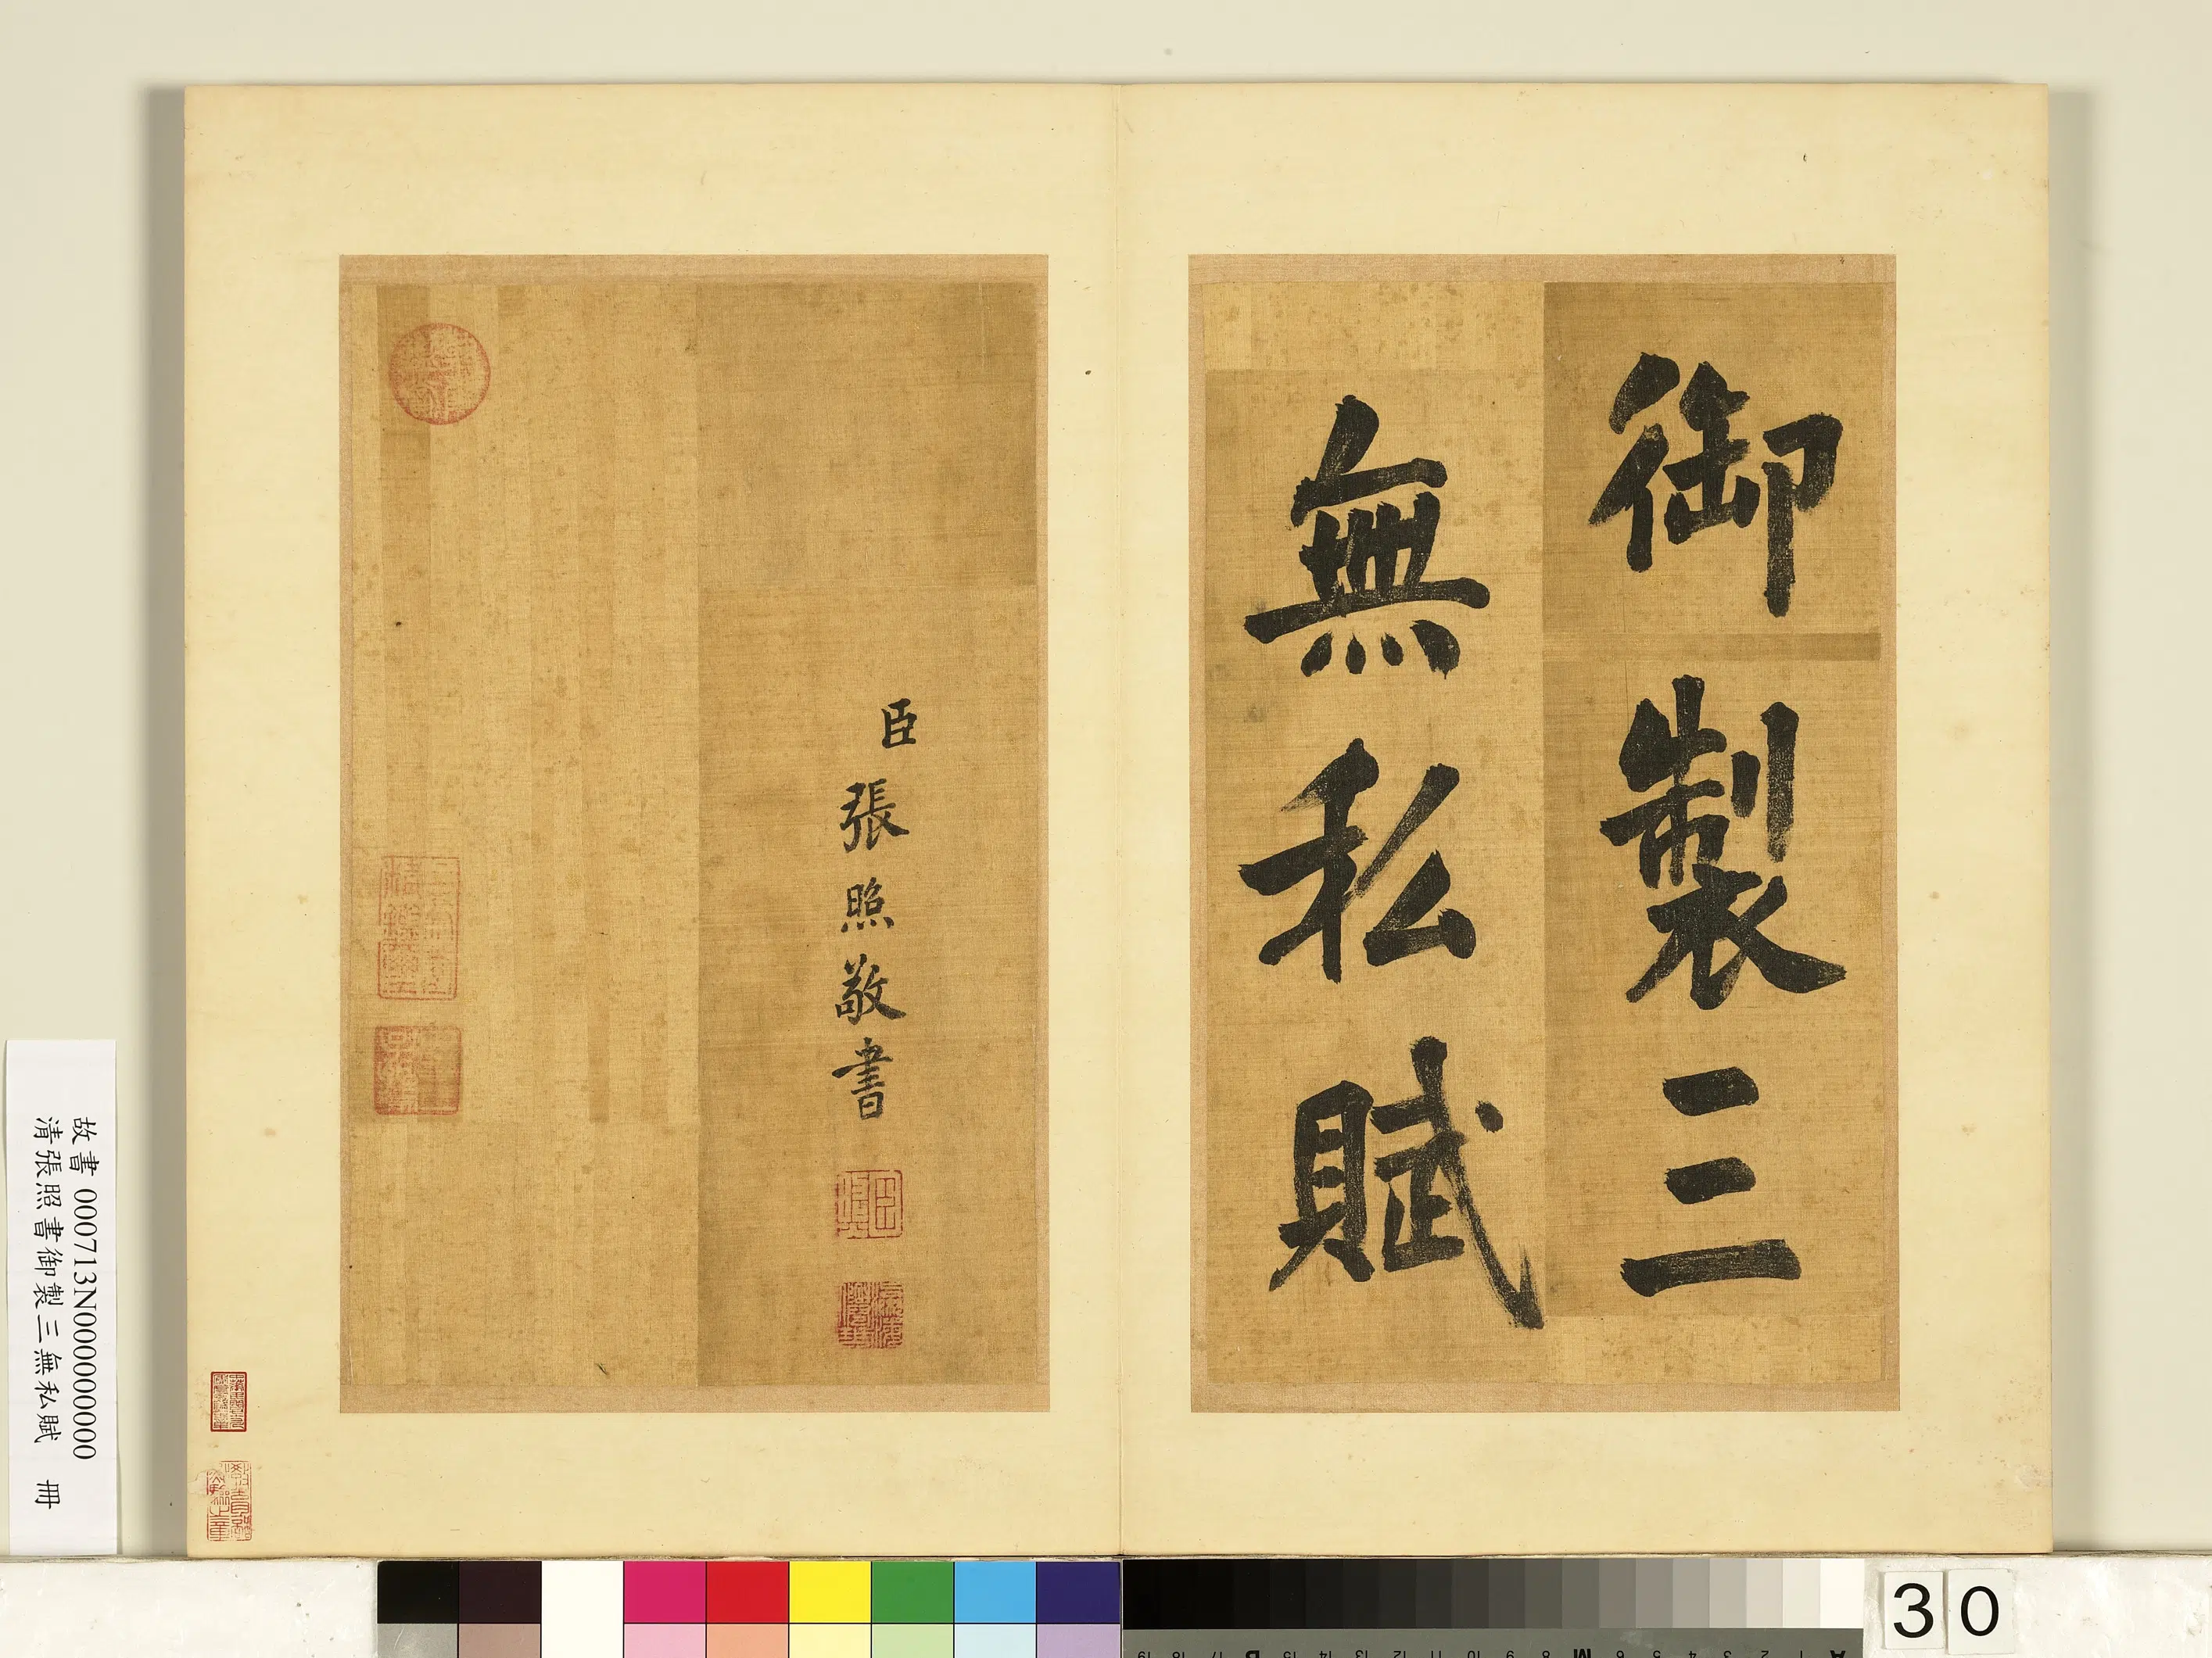 御製三
無私賦
臣
張照敬書
故書 000713N000000000
清張照書御製三無私賦 冊
30